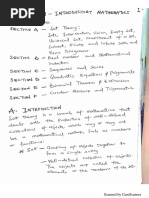 - INTRODUCTORY MATHEMATICS 1 -
SECTION A - Set Theory:
Sets, Intersection, Union, Empty set,
Universal set, Complement of a set,
subset, Finite and Infinite Sets and
SECTION B - Real number and Mathematical
Induction
SECTION C - Sequence and Series
SECTION D - Quadratic Equations &
SECTION E - Binomial Theorem &
SECTION F - Circular measure and Trigonometric
A: INTRODUCTION
Set theory is a branch of mathematics that
deals with the properties of well-defined
collection of objects, which may or may not
be a mathematical nature, such as numbers
or function.
Set - Grouping of objects together to
form a single entity
- Well-defined collection of objects.
The objects are called the
elements or the members of the set
Scanned by CamScanner